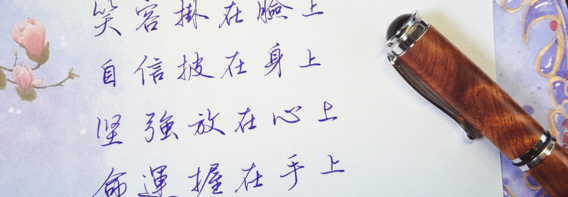 笑容掛在臉上
自信披在身上
坚強放在心上
命運握在手上